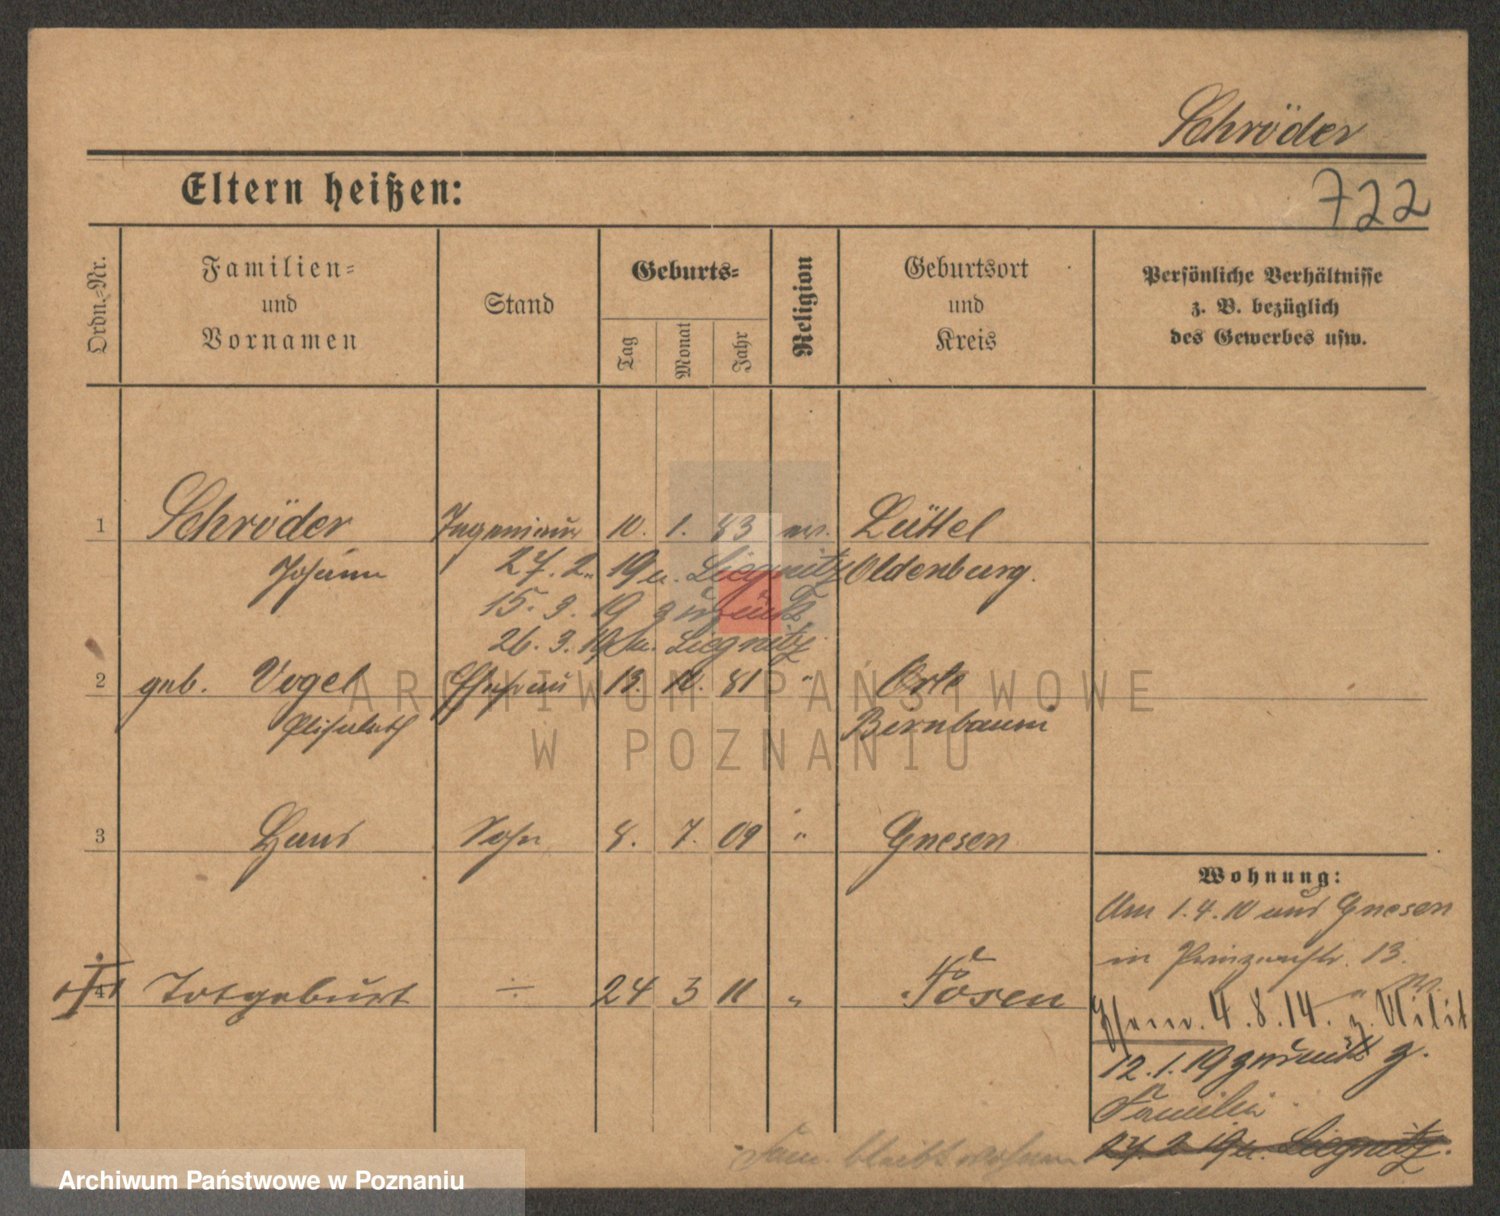 Schröder
Eltern heißen:
722
Ordn.-Nr.
Familien-
und
Vornamen
Stand
Geburts-
Tag
Monat
Jahr
Religion
Geburtsort
und
Kreis
Persönliche Verhältnisse
z. B. bezüglich
des Gewerbes usw.
1 Schröder Ingenieur 10. 1. 83 ev. Lüttel
Johann 27. 2. 19 n. Liegnitz Oldenburg.
15. 3. 19 zurück
26. 3. 19 n. Liegnitz
2 geb. Vogel Ehefrau 13. 10. 81 " Orle
Elisabeth Birnbaum
ARCHIWUM PAŃSTWOWE
W POZNANIU
3 Hans Sohn 8. 7. 09 " Gnesen
Wohnung:
Am 1.4.10 aus Gnesen
in Prinzenstr. 13.
4 Totgeburt ÷ 24 3 11 " Posen
Ehem. 4.8.14. z. Milit
12.1.19 zurück z.
Familie
27. 2. 19 n. Liegnitz.
Fam. bleibt wohnen
Archiwum Państwowe w Poznaniu